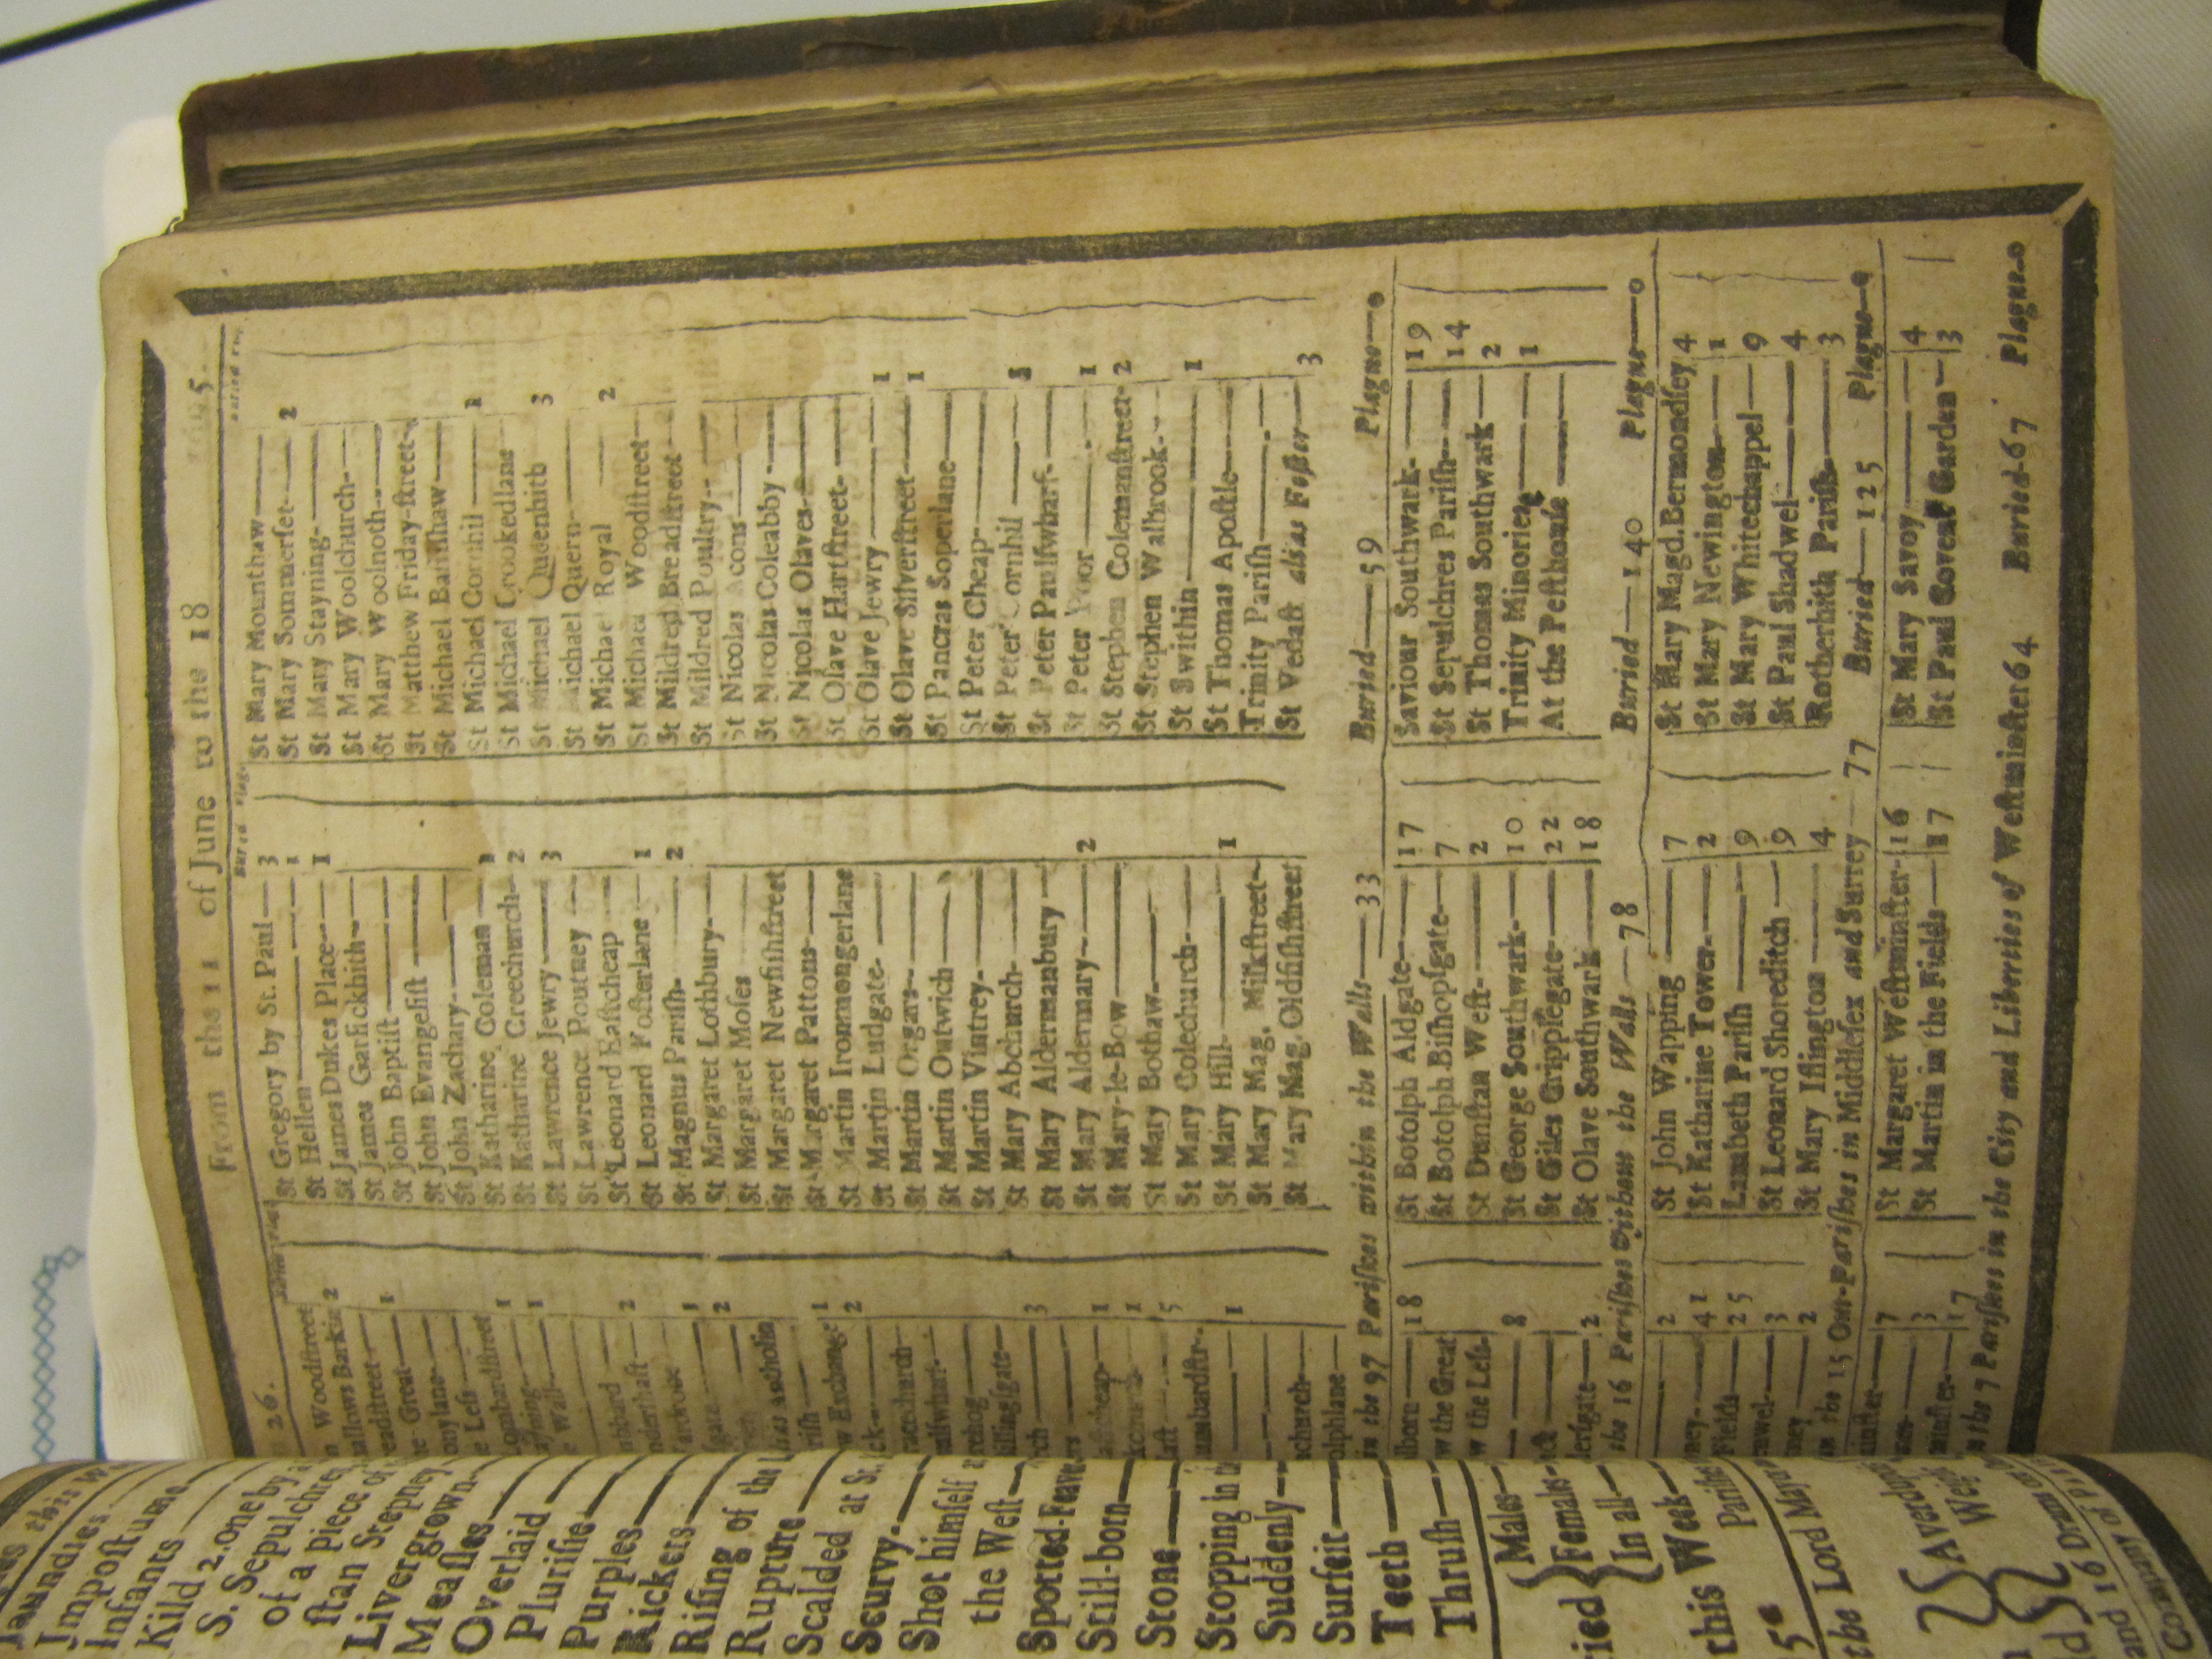 26. From the 11 of June to the 18
Woodstreet
hallows Barkin 2
readstreet 1
Great
onylane
Less
Lombardstreet 1
1
Wall
2
ndershaft 1
2
alias Antholin
rish 1
Exchange 2
racechurch
illingsgate
3
1
1
5
umbardstr-
1
church
olphlane
St Gregory by St. Paul— 3
St Hellen— 1
St James Dukes Place— 1
St James Garlickhith—
St John Baptist—
St John Evangelist—
St John Zachary—
St Katharine Coleman— 1
St Katharine Creechurch— 2
St Lawrence Jewry— 3
St Lawrence Poutney—
St Leonard Eastcheap
St Leonard Fosterlane— 1
St Magnus Parish— 2
St Margaret Lothbury—
St Margaret Moses
St Margaret Newfishstreet
St Margaret Pattons—
St Martin Ironmongerlane
St Martin Ludgate—
St Martin Orgars—
St Martin Outwich—
St Martin Vintrey—
St Mary Abchurch—
St Mary Aldermanbury—
St Mary Aldermary— 2
St Mary-le-Bow—
St Mary Bothaw—
St Mary Colechurch—
St Mary Hill— 1
St Mary Mag. Milkstreet—
St Mary Mag. Oldfishstreet
St Mary Mounthaw—
St Mary Sommerset— 2
St Mary Stayning—
St Mary Woolchurch—
St Mary Woolnoth—
St Matthew Friday-street—
St Michael Bassishaw—
St Michael Cornhil— 1
St Michael Crookedlane
St Michael Queenhith 3
St Michael Quern—
St Michael Royal 2
St Michael Woodstreet—
St Mildred Breadstreet—
St Mildred Poultry—
St Nicolas Acons—
St Nicolas Coleabby—
St Nicolas Olaves—
St Olave Hartstreet—
St Olave Jewry— 1
St Olave Silverstreet— 1
St Pancras Soperlane—
St Peter Cheap—
St Peter Cornhil— 1
St Peter Paulswharf— 
St Peter Poor— 1
St Stephen Colemanstreet— 2
St Stephen Walbrook—
St Swithin— 1
St Thomas Apostle—
Trinity Parish—
St Vedast alias Foster— 3
in the 97 Parishes within the Walls— 33 Buried— 59 Plague—0
lborn— 18
w the Great
w the Less-
8
dersgate— 2
St Botolph Aldgate— 17
St Botolph Bishopsgate— 7
St Dunstan West— 2
St George Southwark— 10
St Giles Cripplegate— 22
St Olave Southwark— 18
Saviour Southwark— 19
St Sepulchres Parish— 14
St Thomas Southwark— 2
Trinity Minories— 1
At the Pesthouse—
the 16 Parishes without the Walls— 78 Buried— 140 Plague—0
2
ney— 41
Fields— 25
3
2
St John Wapping— 7
St Katharine Tower— 2
Lambeth Parish— 9
St Leonard Shoreditch— 9
St Mary Islington— 4
St Mary Magd. Bermondsey 4
St Mary Newington— 1
St Mary Whitechappel— 9
St Paul Shadwel— 4
Rotherhith Parish— 3
in the 15 Out-Parishes in Middlesex and Surrey 77 Buried— 125 Plague—0
minster— 7
3
minster— 17
St Margaret Westminster— 16
St Martin in the Fields— 17
St Mary Savoy— 4
St Paul Covent Garden— 3
in the 7 Parishes in the City and Liberties of Westminster 64 Buried 67 Plague—0
Jaundies
Impostume
Infants
Kild 2. one by
S. Sepulchre
of a piece of
stan Stepney
Livergrown—
Measles—
Overlaid
Plurisie—
Purples—
Rickets—
Rising of the L
Rupture—
Scalded at St.
Scurvy—
Shot himself
the West—
Spotted-Feaver
Still-born—
Stone—
Stopping in
Suddenly—
Surfeit—
Teeth—
Thrush—
Males—
Females—
In all—
this Week—
the Lord Mayor
Averdupois
Weigh
and 16 Drams
Company of